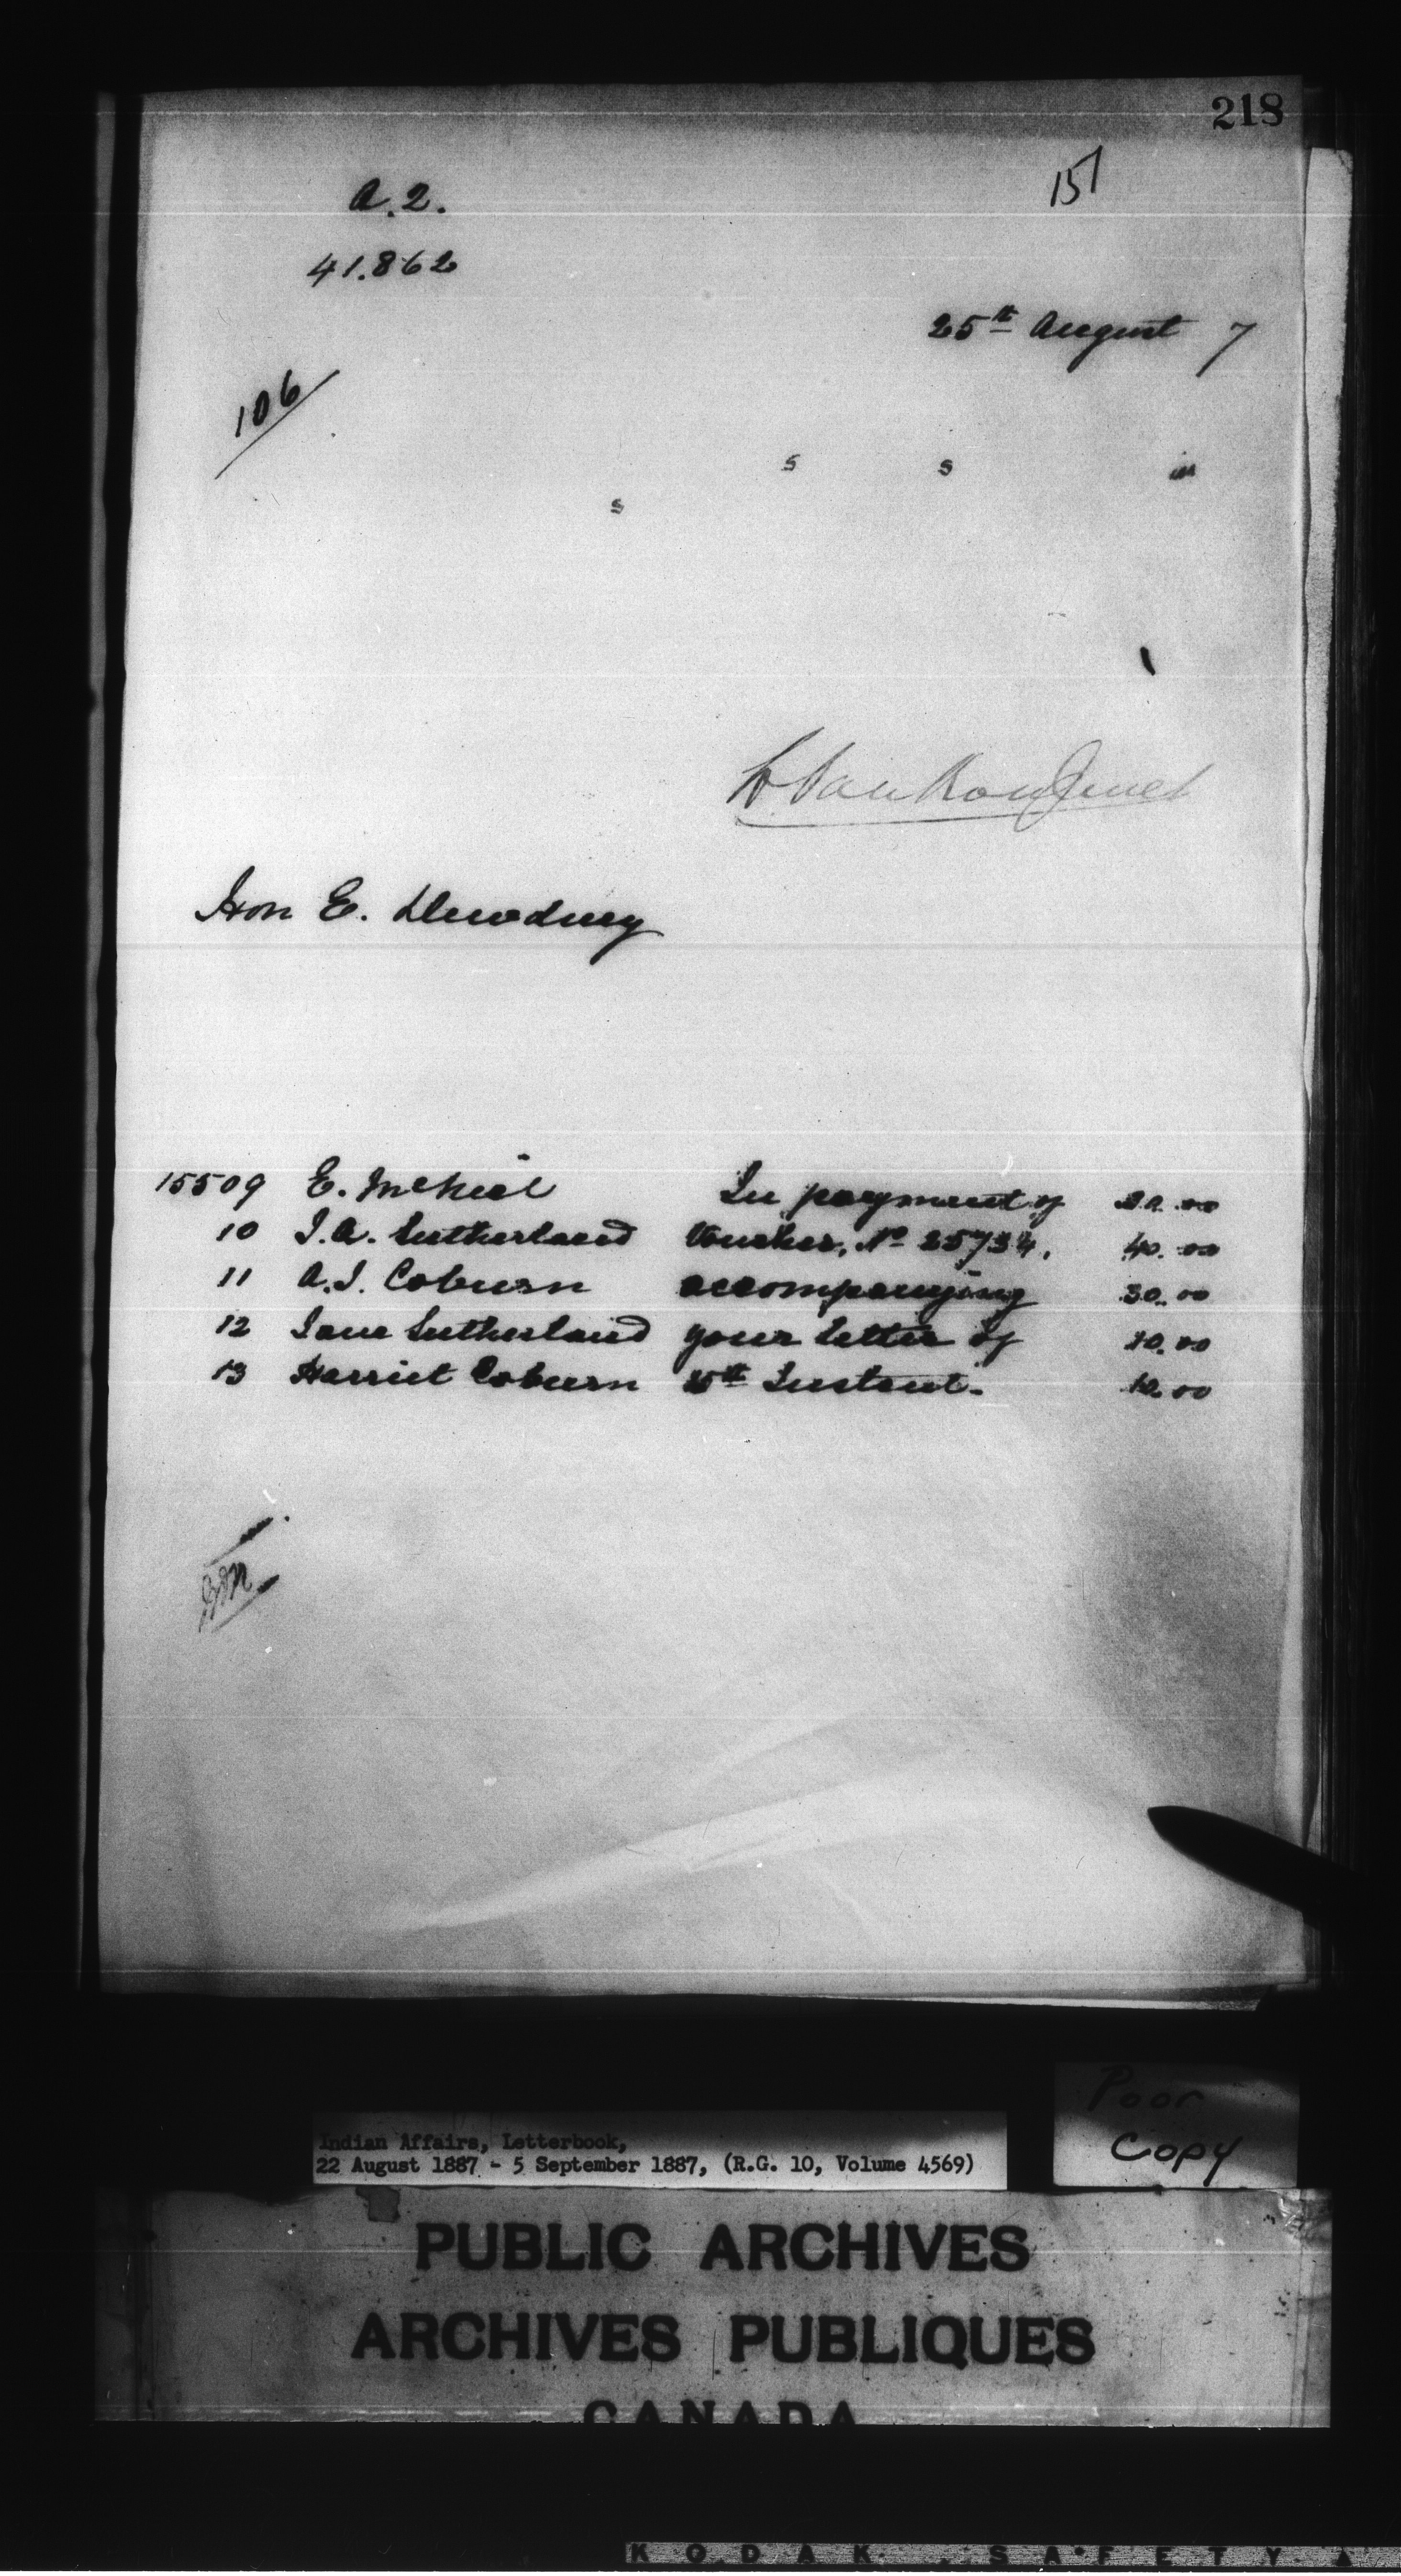 218
151
A.2.
41.862
25th August 7
106
s s in
s
L. VanKoughnet
Hon E. Dewdney
15509 E. McNeil In payment of 20.00
10 J.A. Sutherland Voucher, No 25734, 40.00
11 A.J. Coburn accompanying 30.00
12 Jane Sutherland your letter of 10.00
13 Harriet Coburn Instant. 10.00
Poor
Copy
Indian Affairs, Letterbook,
22 August 1887 - 5 September 1887, (R.G. 10, Volume 4569)
PUBLIC ARCHIVES
ARCHIVES PUBLIQUES
CANADA
KODAK SAFETY A